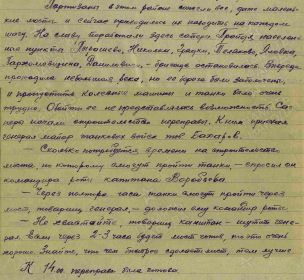 Партизаны в этом районе сожгли все, даже малень-
кие мосты и сейчас приходится их наводить на каждом
шагу. На славу поработали здесь саперы. Пройдя населен-
ные пункты
Пархомовщина, бригада остановилась. Впереди
проходила небольшая река, но ее берега были заболочены,
и пропустить колесные машины и танки было очень
трудно. Обойти ее не представлялось возможности. Са-
перы начали строительство переправы. К ним приехал
генерал майор танковых войск тов. Бахаров.
— Сколько потребуется времени на строительство
моста, по которому смогут пройти танки — спросил он
командира роты капитана Воробьева.
— Через полтора часа танки смогут пройти через
мост, товарищ генерал, — доложил ему командир роты.
— Не хвастайте, товарищ капитан — шутит гене-
рал. Если через 2-3 часа будет мост готов, то это очень
хорошо. Знайте, что чем быстрее сделаете мост, тем лучше.
К 14 00 переправа была готова.